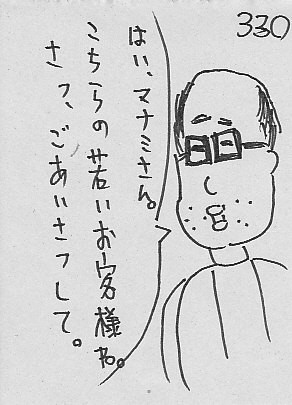 330
はい、マナミさん。
こちらの若いお客様ね。
さっ、ごあいさつして。